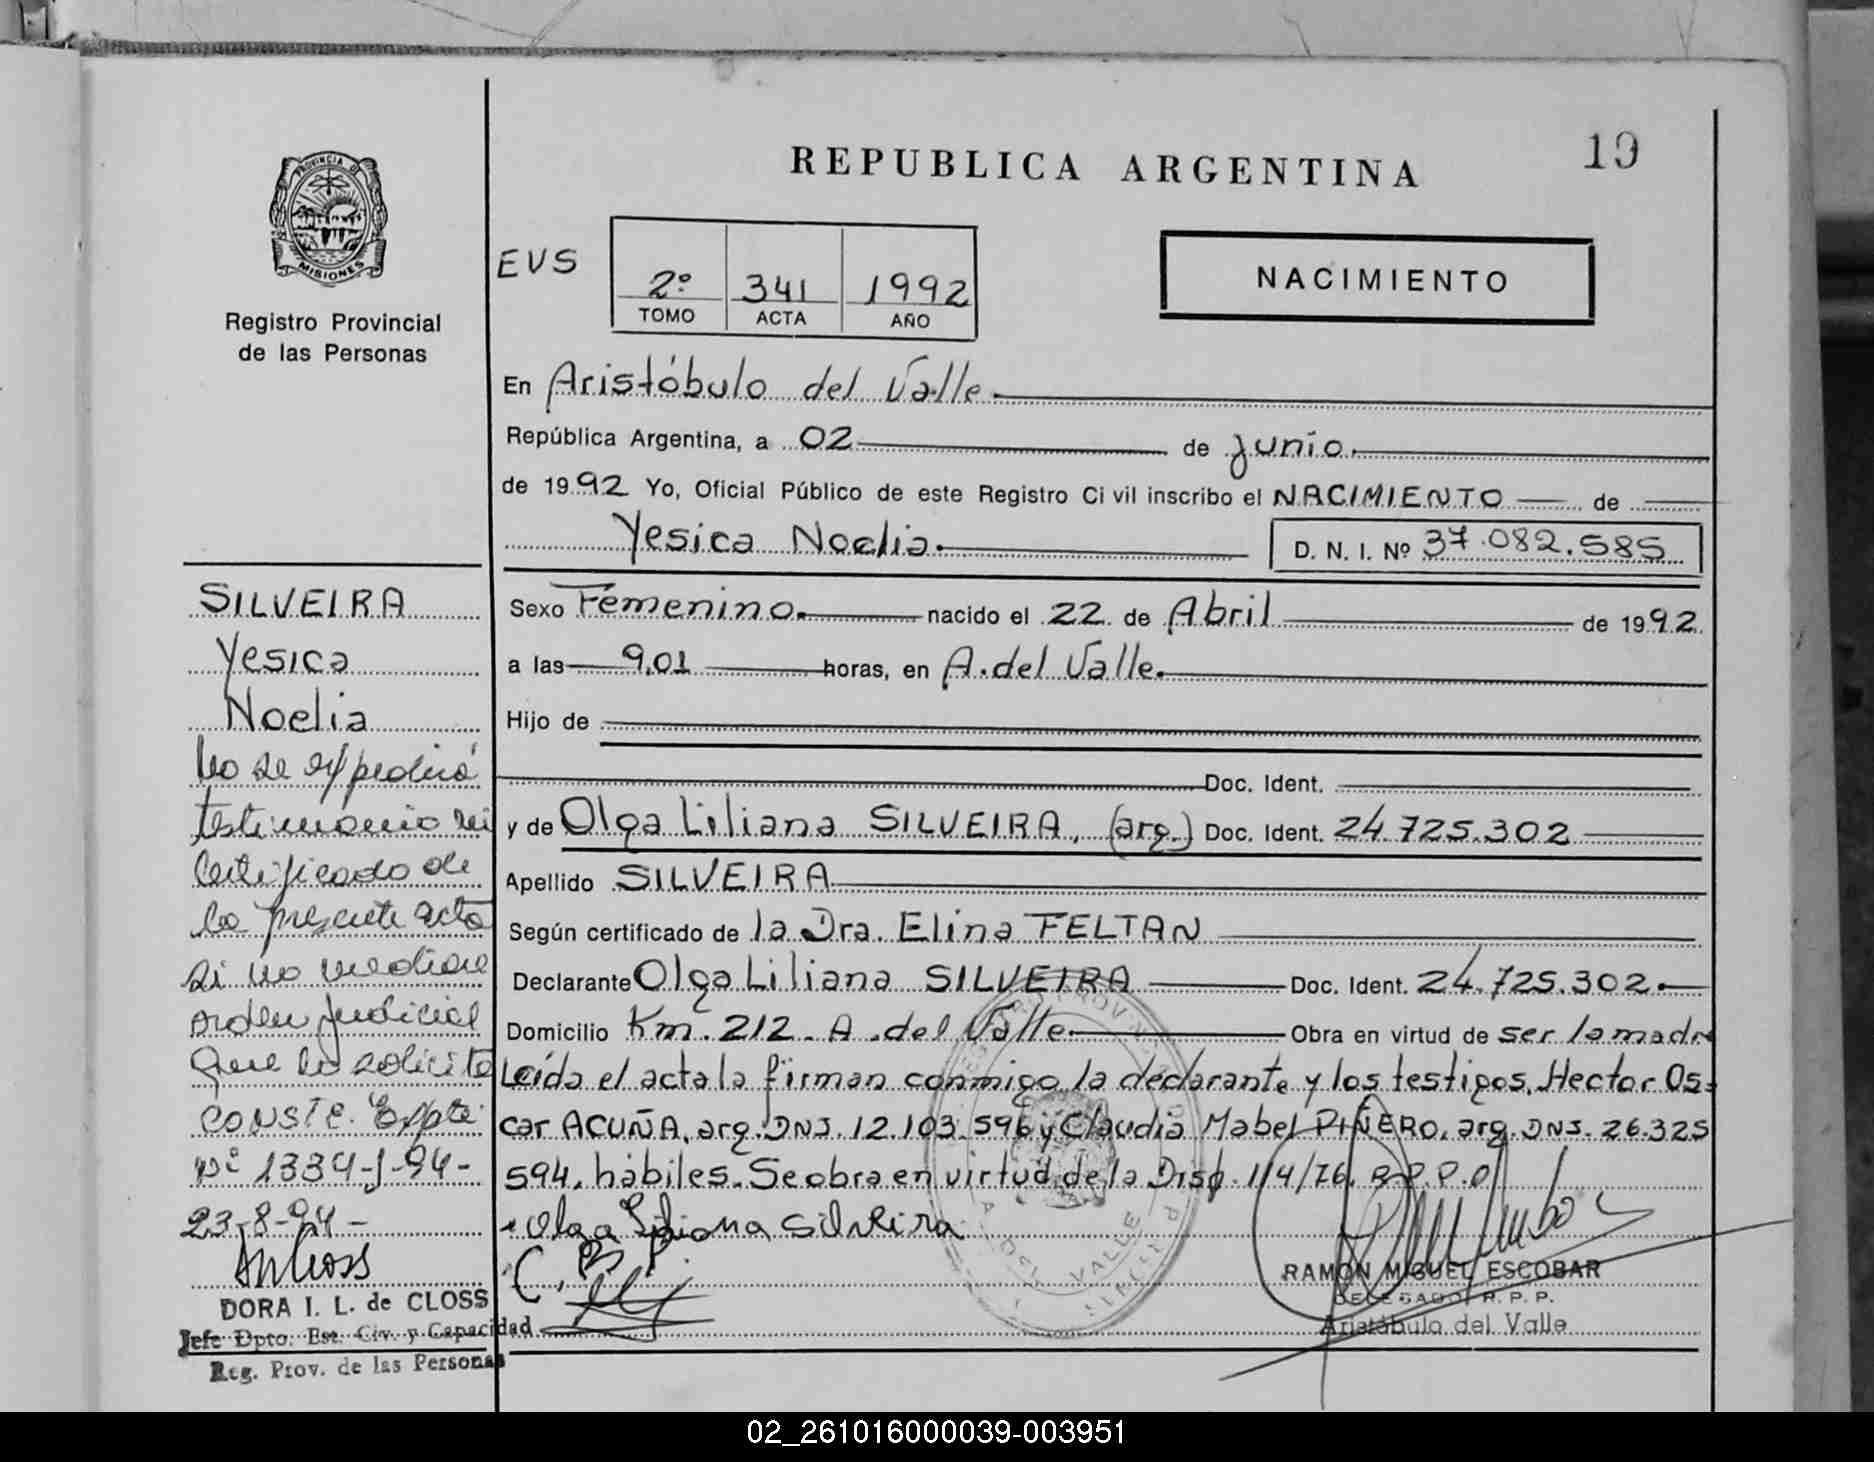 REPUBLICA ARGENTINA
19
PROVINCIA DE
MISIONES
Registro Provincial
de las Personas
EVS
2º 341 1992
TOMO ACTA AÑO
NACIMIENTO
En Aristóbulo del Valle
República Argentina, a 02 de Junio
de 1992 Yo, Oficial Público de este Registro Civil inscribo el NACIMIENTO de
Yesica Noelia. D. N. I. Nº 37.082.585
Sexo Femenino. nacido el 22 de Abril de 1992
a las 9,01 horas, en A. del Valle.
Hijo de
Doc. Ident.
y de Olga Liliana SILVEIRA, (arg.) Doc. Ident. 24.725.302
Apellido SILVEIRA
Según certificado de la Dra. Elina FELTAN
Declarante Olga Liliana SILVEIRA Doc. Ident. 24.725.302.
Domicilio Km. 212. A. del Valle Obra en virtud de ser la madre
Leída el acta la firman conmigo la declarante y los testigos, Hector Os-
car ACUÑA, arg. DNI. 12.103.596 y Claudia Mabel PIÑERO, arg. DNI. 26.325
594, hábiles. Se obra en virtud de la Disp. 114/76. R.P.P.
Olga Liliana Silveira
C. B P.
RAMON MIGUEL ESCOBAR
DELEGADO R. P. P.
Aristóbulo del Valle
SILVEIRA
Yesica
Noelia
No se expedirá
testimonio ni
Certificado de
la presente acta
si no mediare
orden judicial
que lo solicite
CONSTE. Expte
Nº 1334-J-94-
23-8-94-
DORA I. L. de CLOSS
Jefe Dpto. Est. Civ. y Capacidad
Reg. Prov. de las Personas
02_261016000039-003951